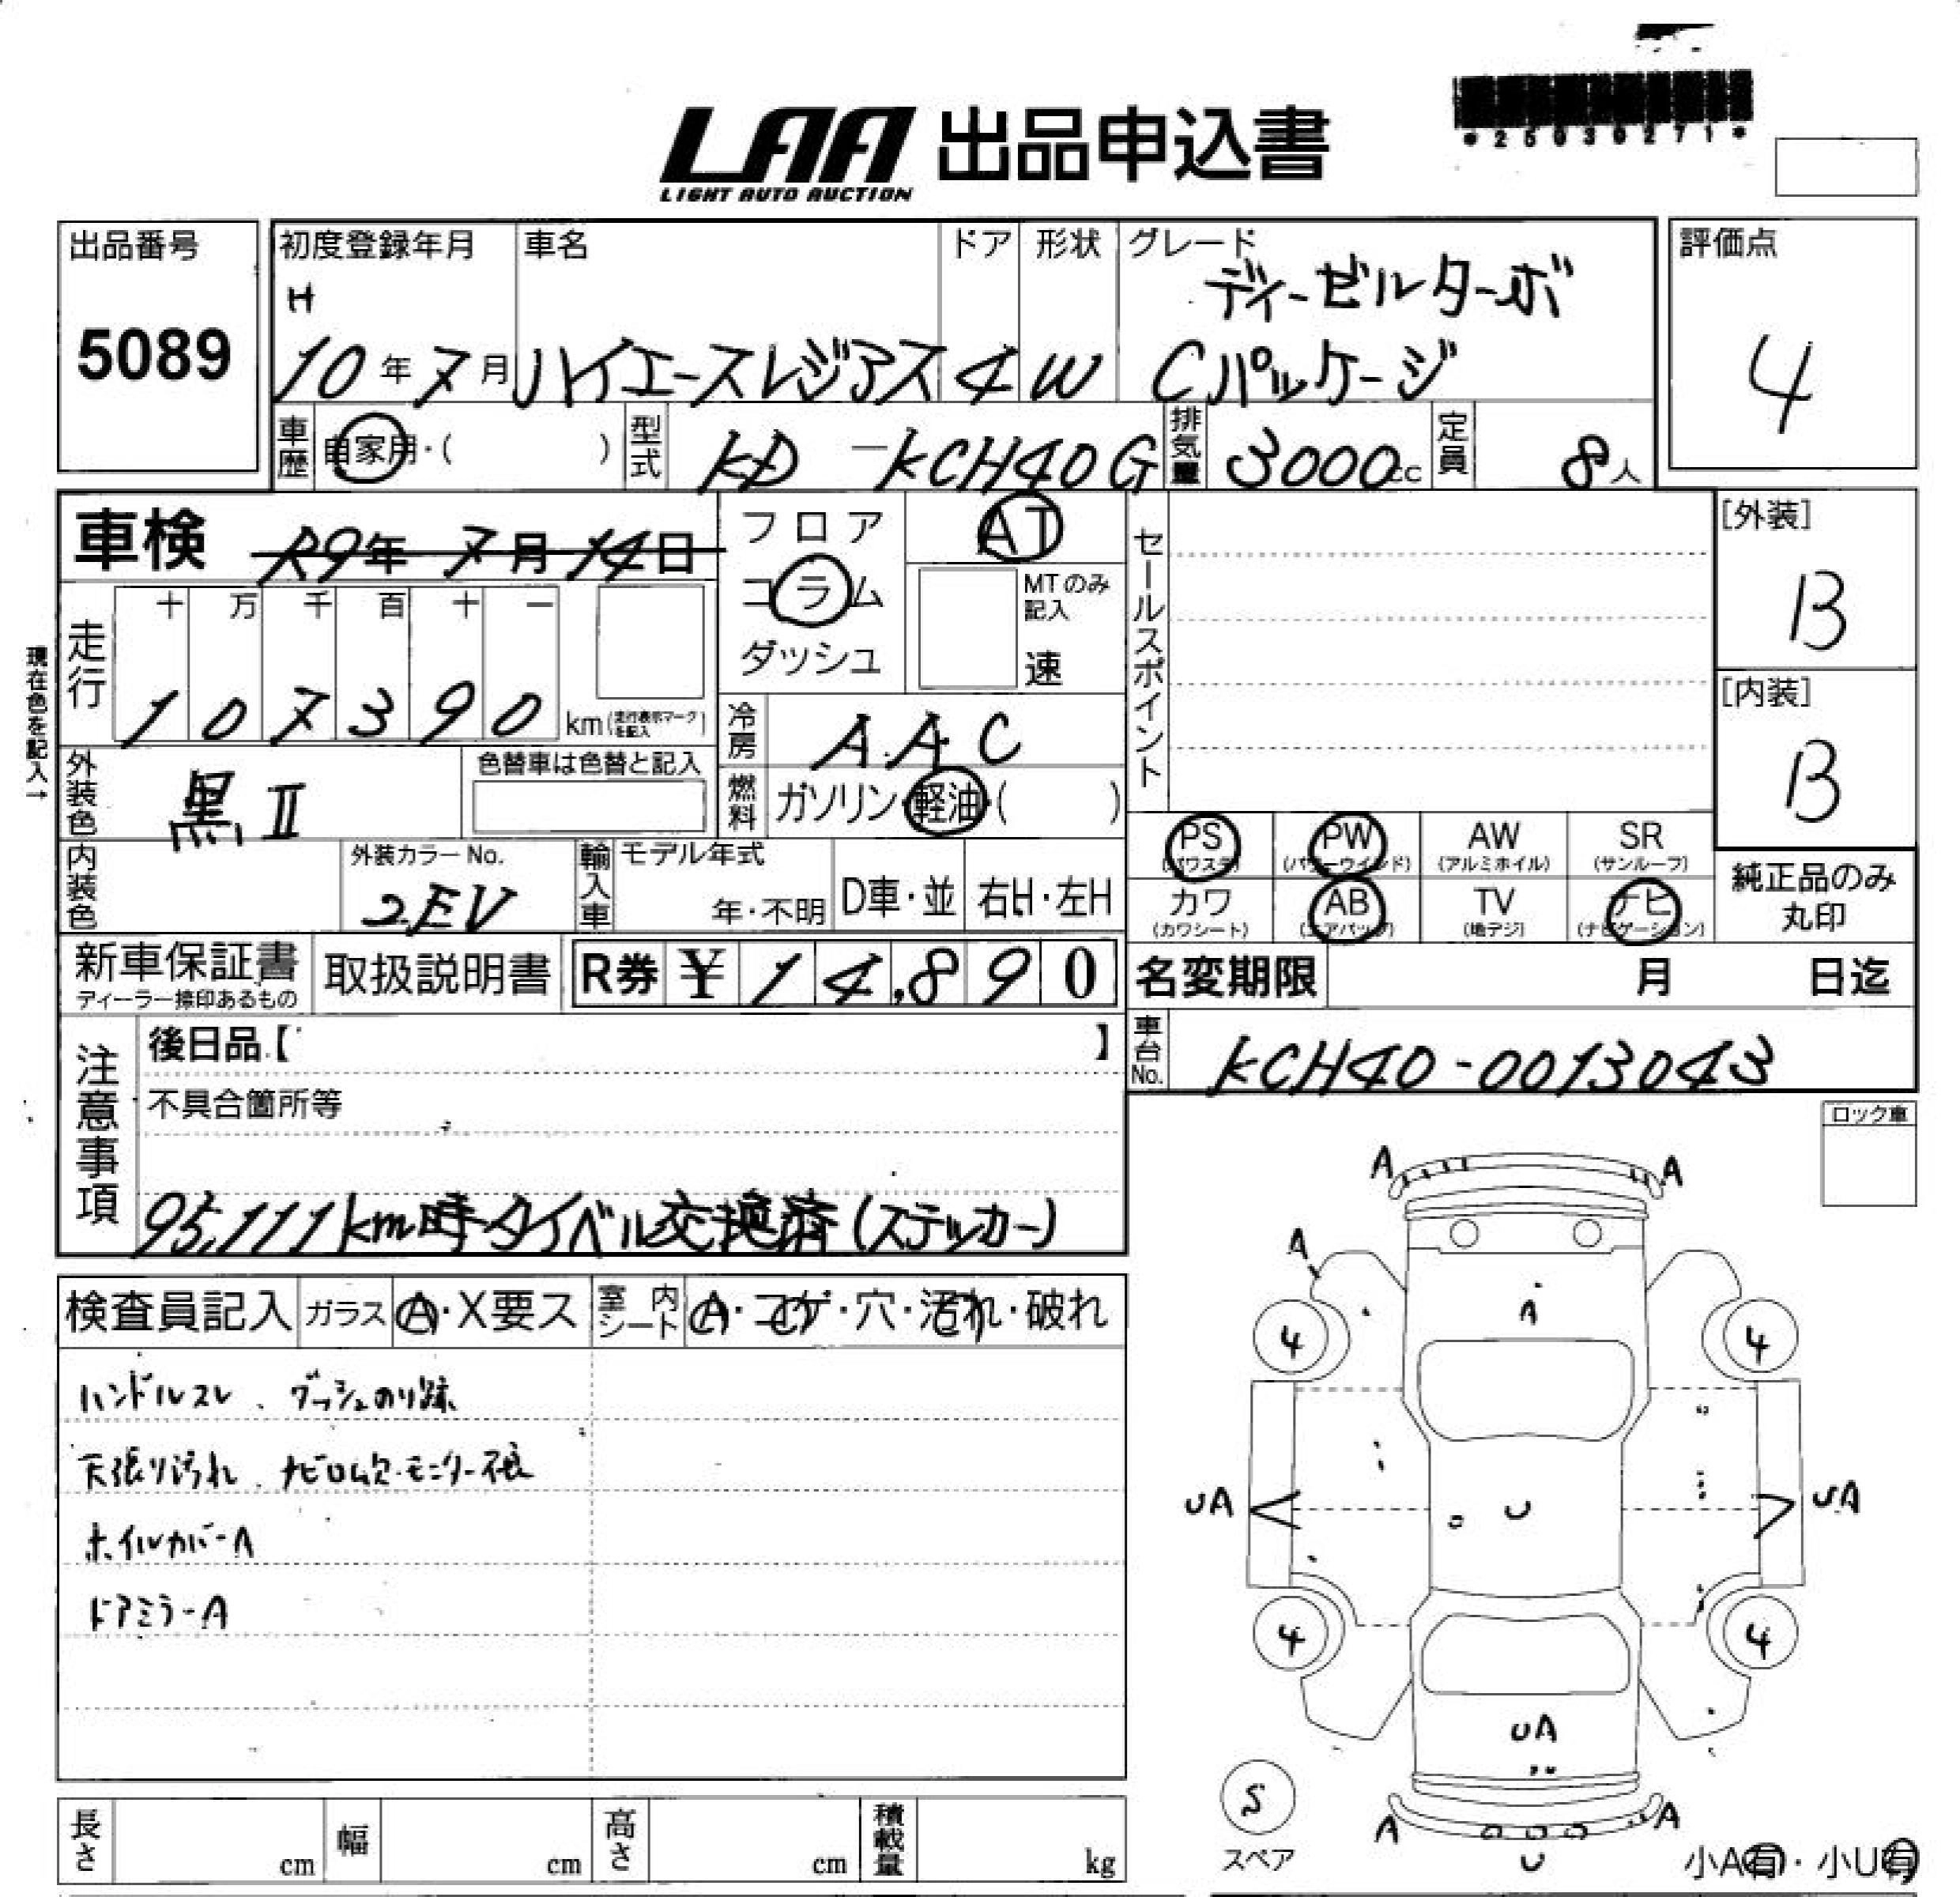 *25030271*
LAA 出品申込書
LIGHT AUTO AUCTION
出品番号
5089
初度登録年月
H
10年7月
車名
ハイエースレジアス
ドア
4
形状
W
グレード
ディーゼルターボ
Cパッケージ
評価点
4
車歴 自家用・( )
型式 KD-KCH40G
排気量 3000cc
定員 8人
車検 R9年7月14日
フロア
コラム
ダッシュ
AT
MTのみ
記入
速
セールスポイント
[外装]
B
[内装]
B
現在色を記入→
走行
十 万 千 百 十 一
1 0 7 3 9 0 km(走行表示マークを記入)
冷房 A.A.C
燃料 ガソリン・軽油・( )
外装色 黒 II
色替車は色替と記入
内装色
外装カラーNo.
2EV
輸入車
モデル年式
年・不明
D車・並
右H・左H
PS
(パワステ)
PW
(パワーウインド)
AW
(アルミホイル)
SR
(サンルーフ)
カワ
(カワシート)
AB
(エアバッグ)
TV
(地デジ)
ナビ
(ナビゲーション)
純正品のみ
丸印
新車保証書
ディーラー捺印あるもの
取扱説明書
R券 ¥ 14,890
名変期限 月 日迄
車台No. KCH40-0013043
注意事項
後日品【 】
不具合箇所等
95,111km時タイベル交換済(ステッカー)
ロック車
検査員記入
ガラス A・X要ス
室内シート A・コゲ・穴・汚れ・破れ
ハンドルスレ、ダッシュのり跡
天張り汚れ、ナビロム欠・モニター不良
ホイルカバーA
ドアミラーA
A A
A
A
4 4
UA U UA
4 4
UA
S
スペア
A A
U
小A有・小U有
長さ cm
幅 cm
高さ cm
積載量 kg